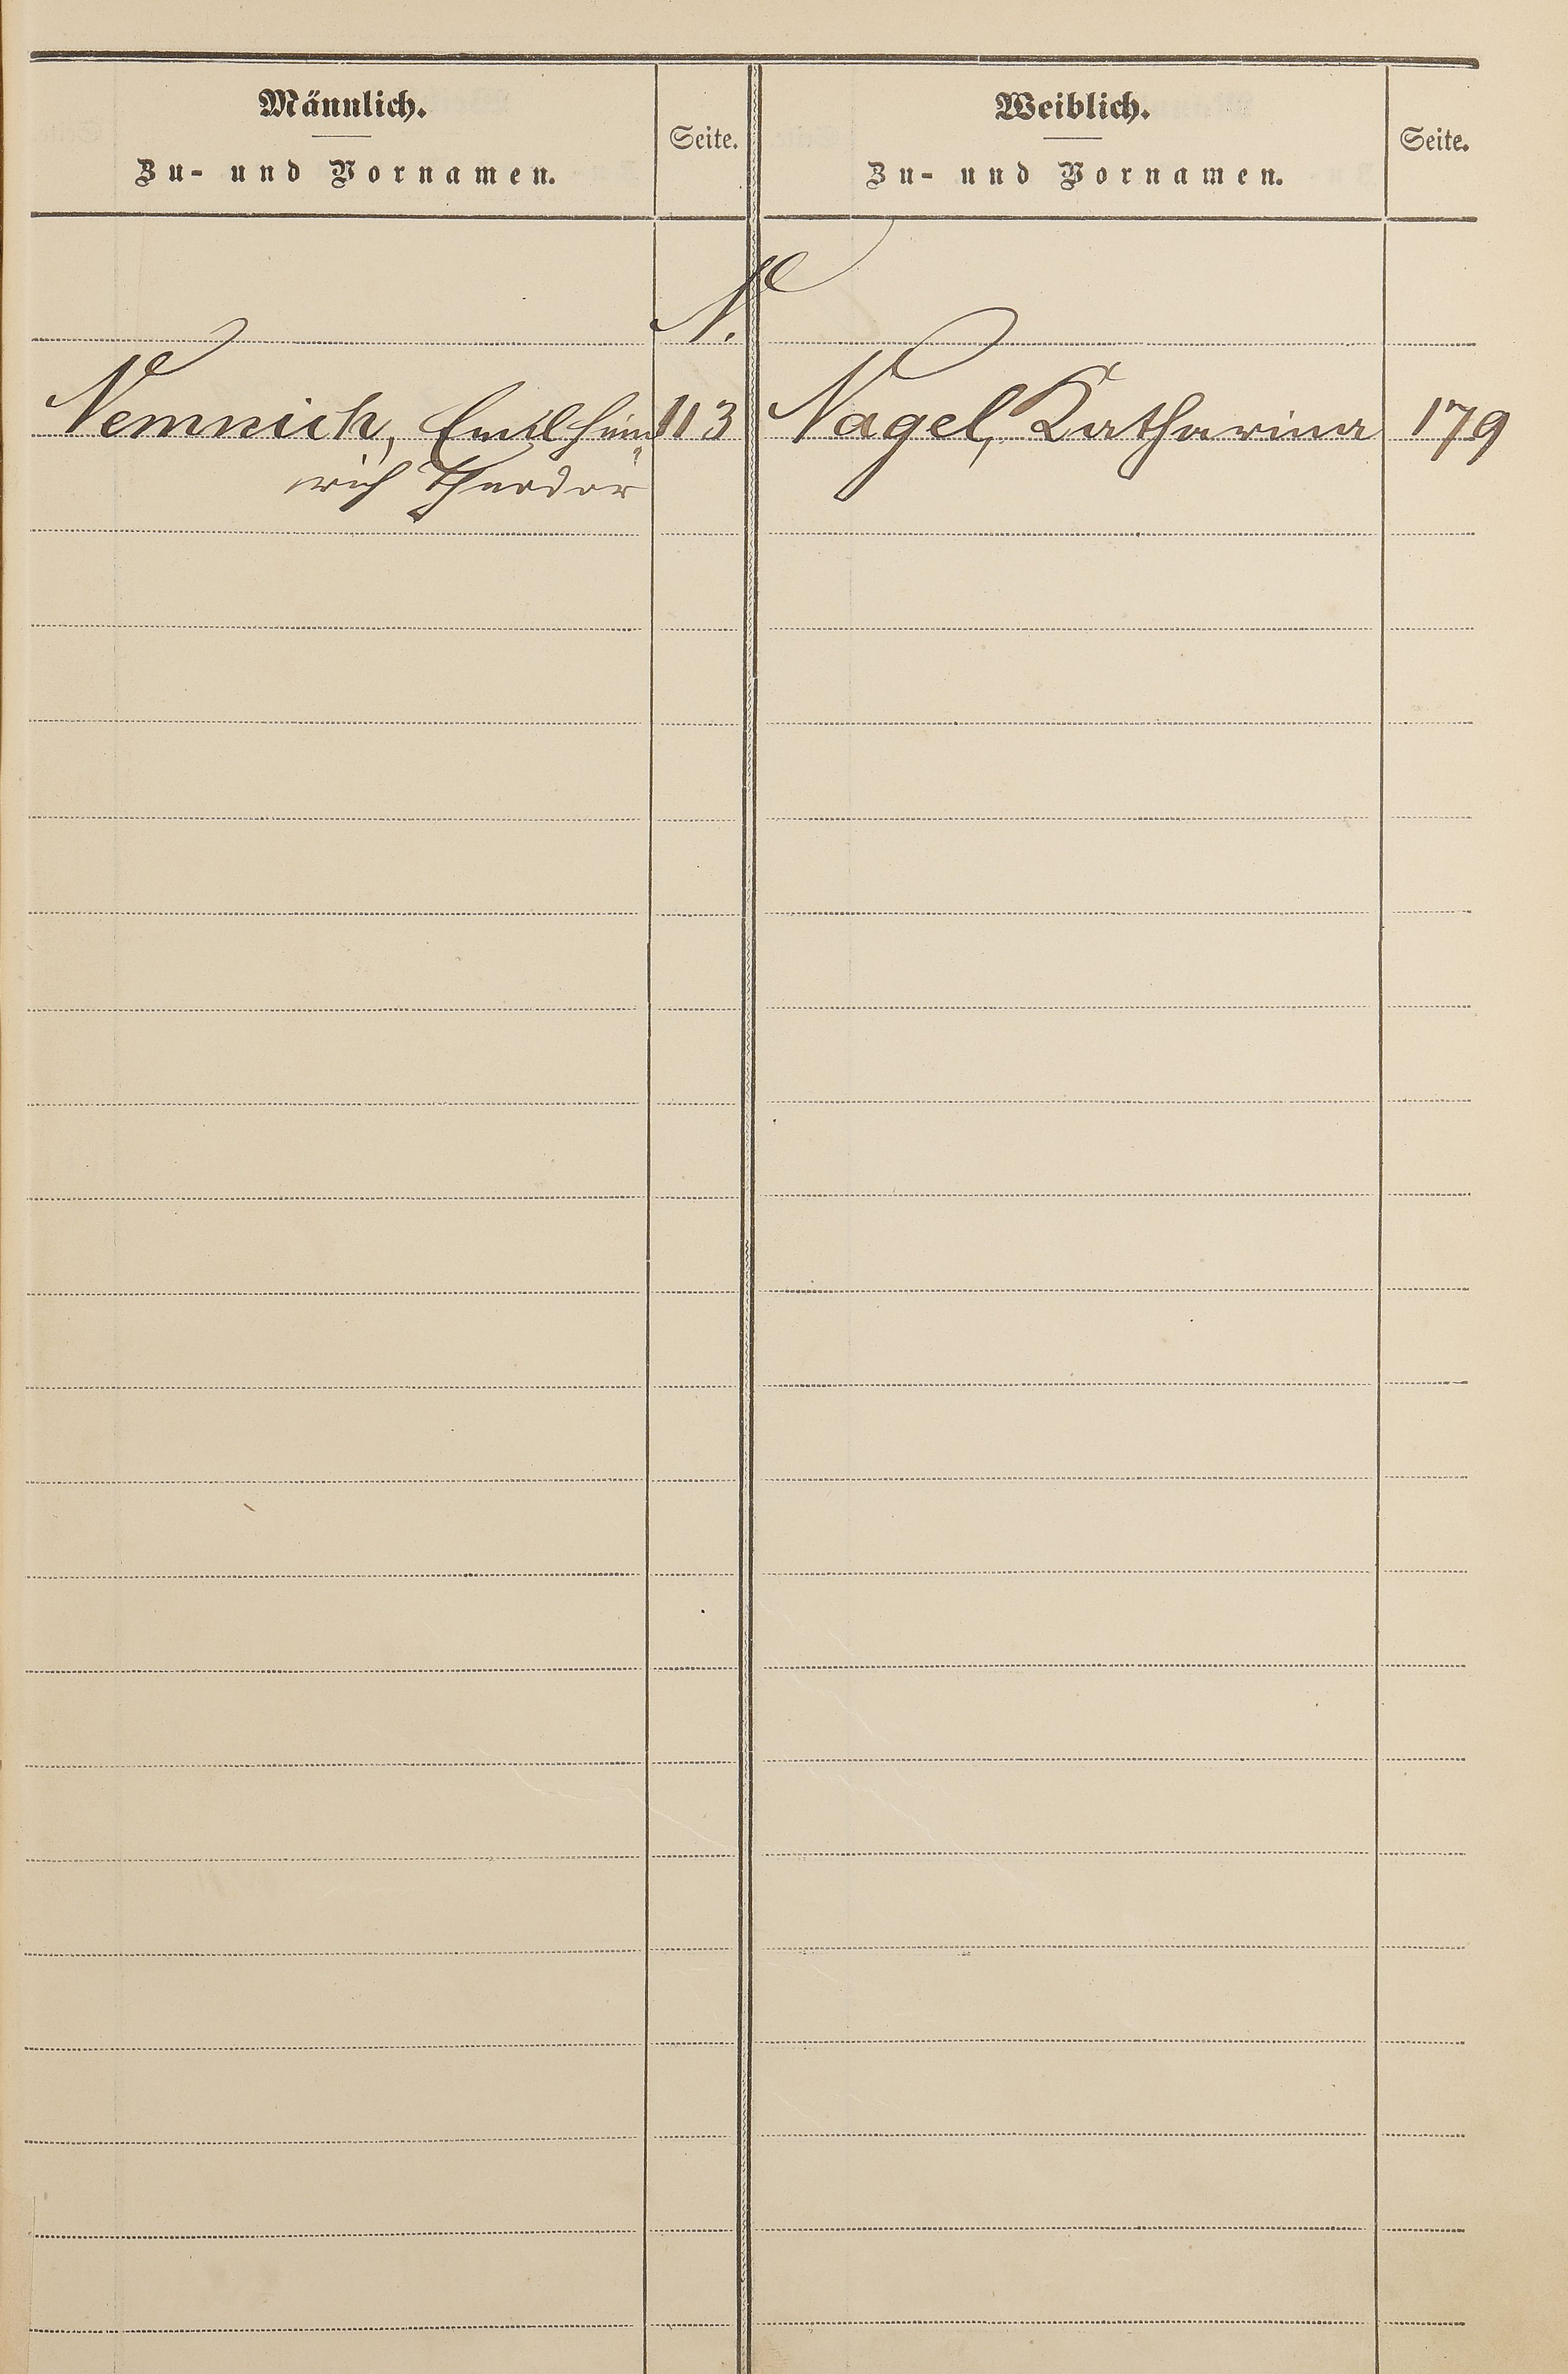 Männlich.
Zu- und Vornamen.
Seite.
Weiblich.
Zu- und Vornamen.
Seite.
N.
Nemnich, Emil Hein 113
rich Theodor
Nagel, Katharina 179